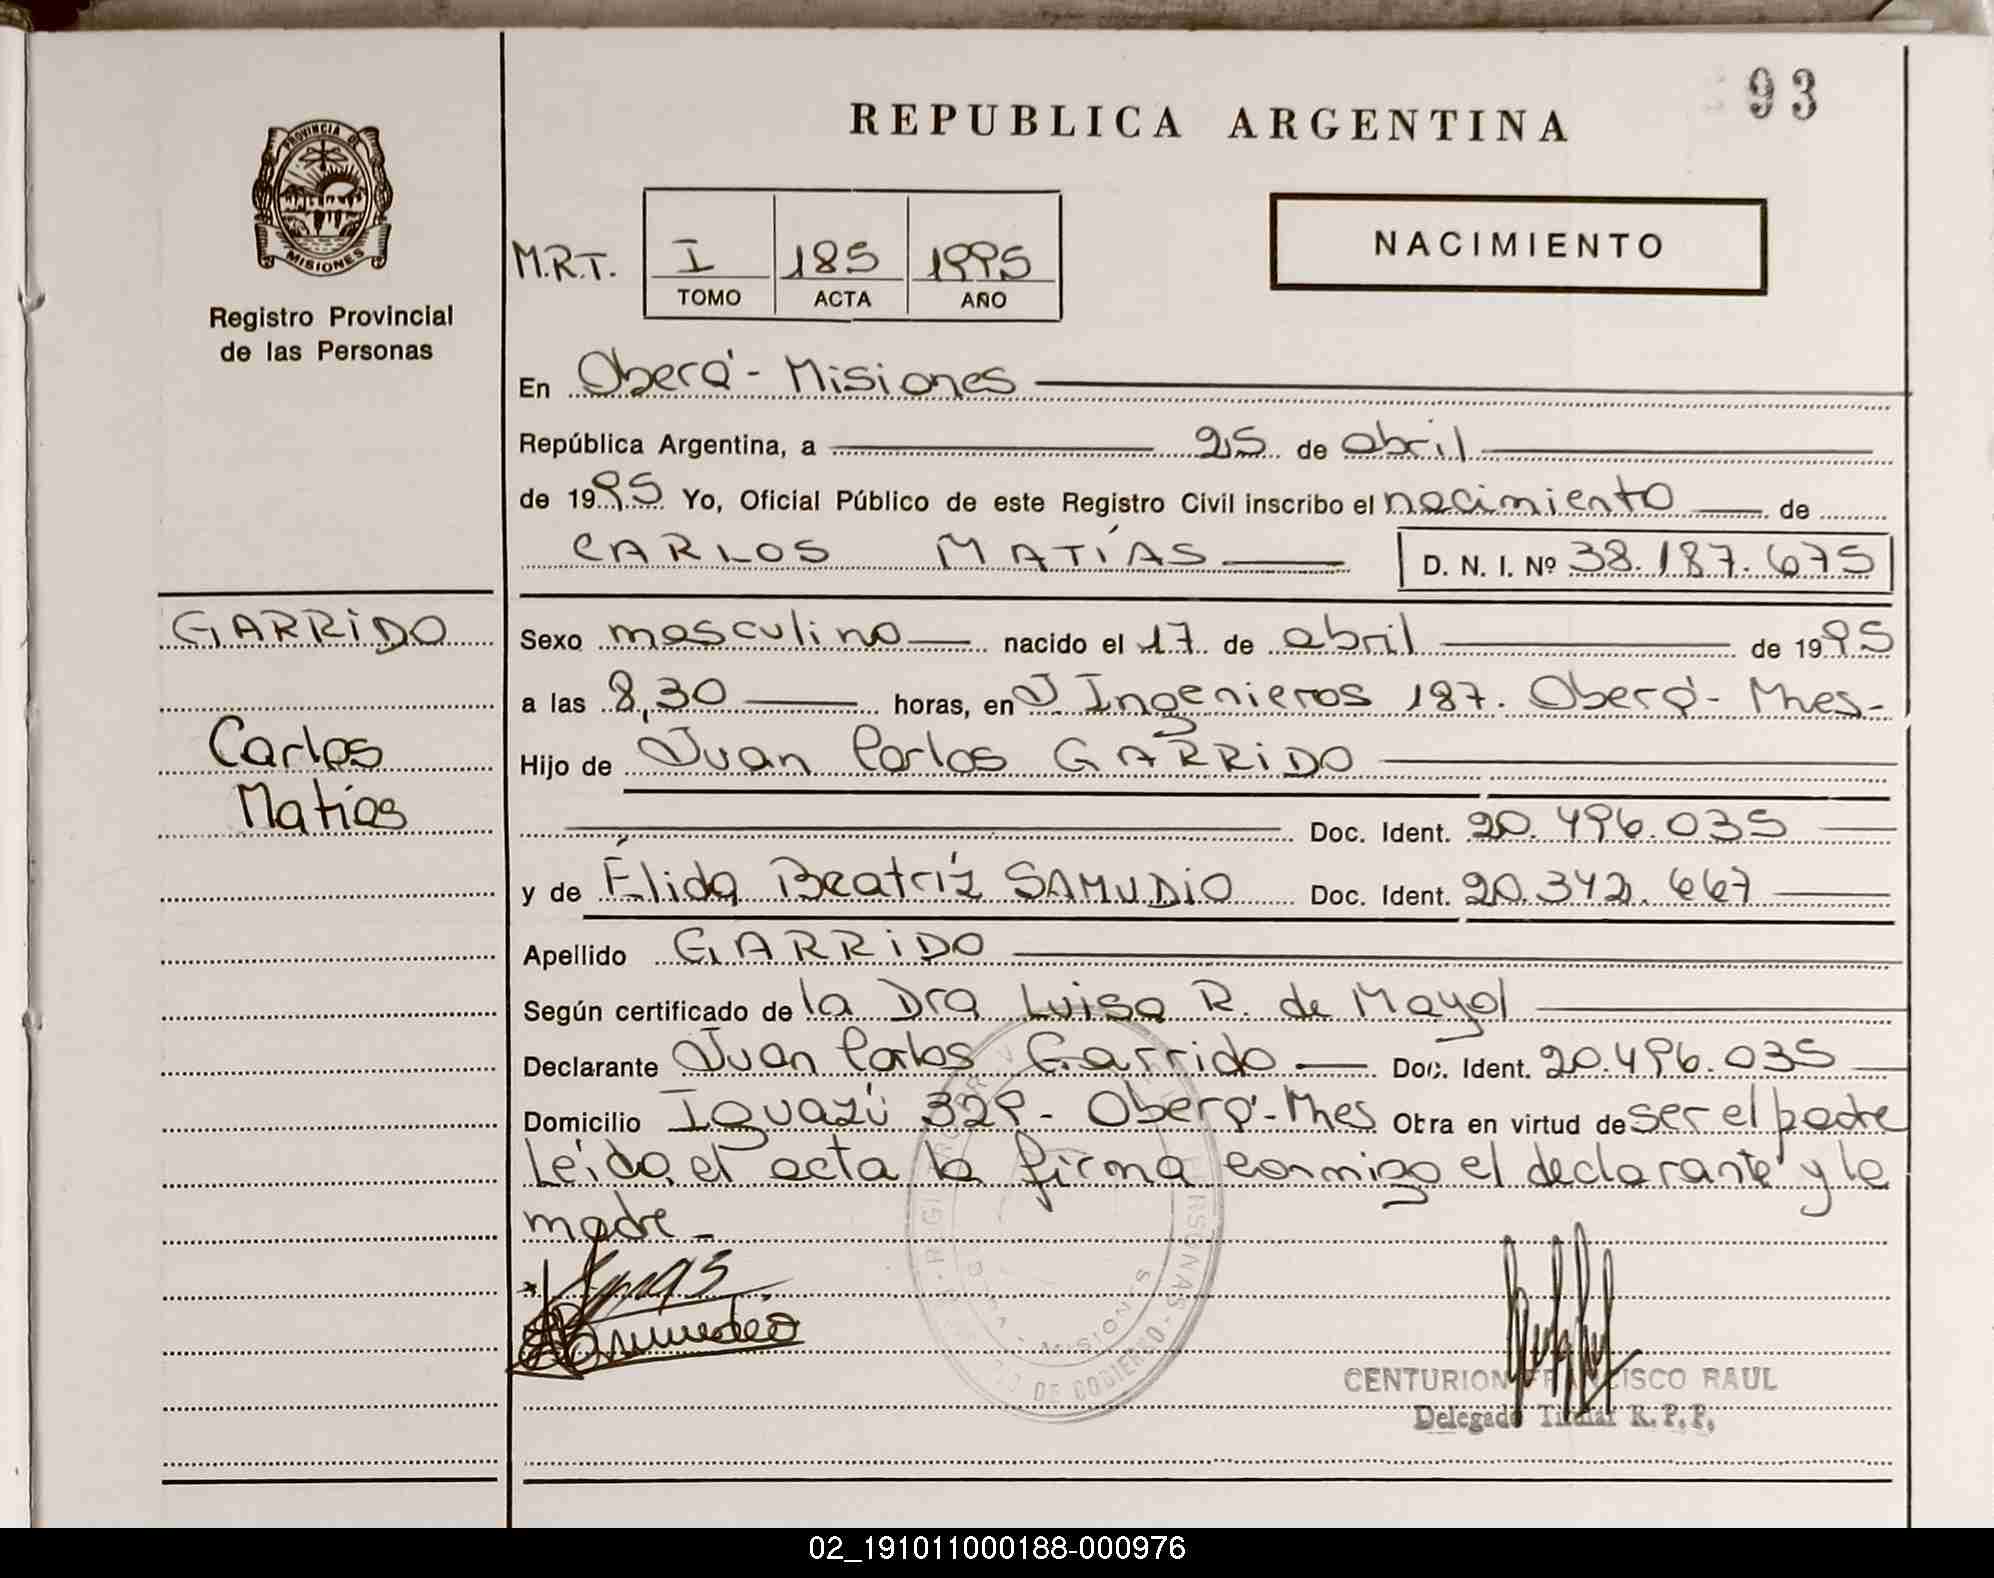 93
REPUBLICA ARGENTINA
PROVINCIA DE
MISIONES
Registro Provincial
de las Personas
NACIMIENTO
M.R.T. I 185 1995
TOMO ACTA AÑO
En Oberá - Misiones
República Argentina, a 25 de abril
de 1995 Yo, Oficial Público de este Registro Civil inscribo el nacimiento de
CARLOS MATÍAS D. N. I. Nº 38.187.675
GARRIDO
Carlos
Matías
Sexo masculino nacido el 17 de abril de 1995
a las 8,30 horas, en J Ingenieros 187. Oberá - Mnes-
Hijo de Juan Carlos GARRIDO
Doc. Ident. 20.496.035
y de Élida Beatríz SAMUDIO Doc. Ident. 20.342.667
Apellido GARRIDO
Según certificado de la Dra Luisa R. de Mayol
Declarante Juan Carlos Garrido Doc. Ident. 20.496.035
Domicilio Iguazú 329 - Oberá - Mnes Obra en virtud de ser el padre
Leída el acta la firma conmigo el declarante y la
madre -
CENTURION FRANCISCO RAUL
Delegado Titular R. P. P.
02_191011000188-000976